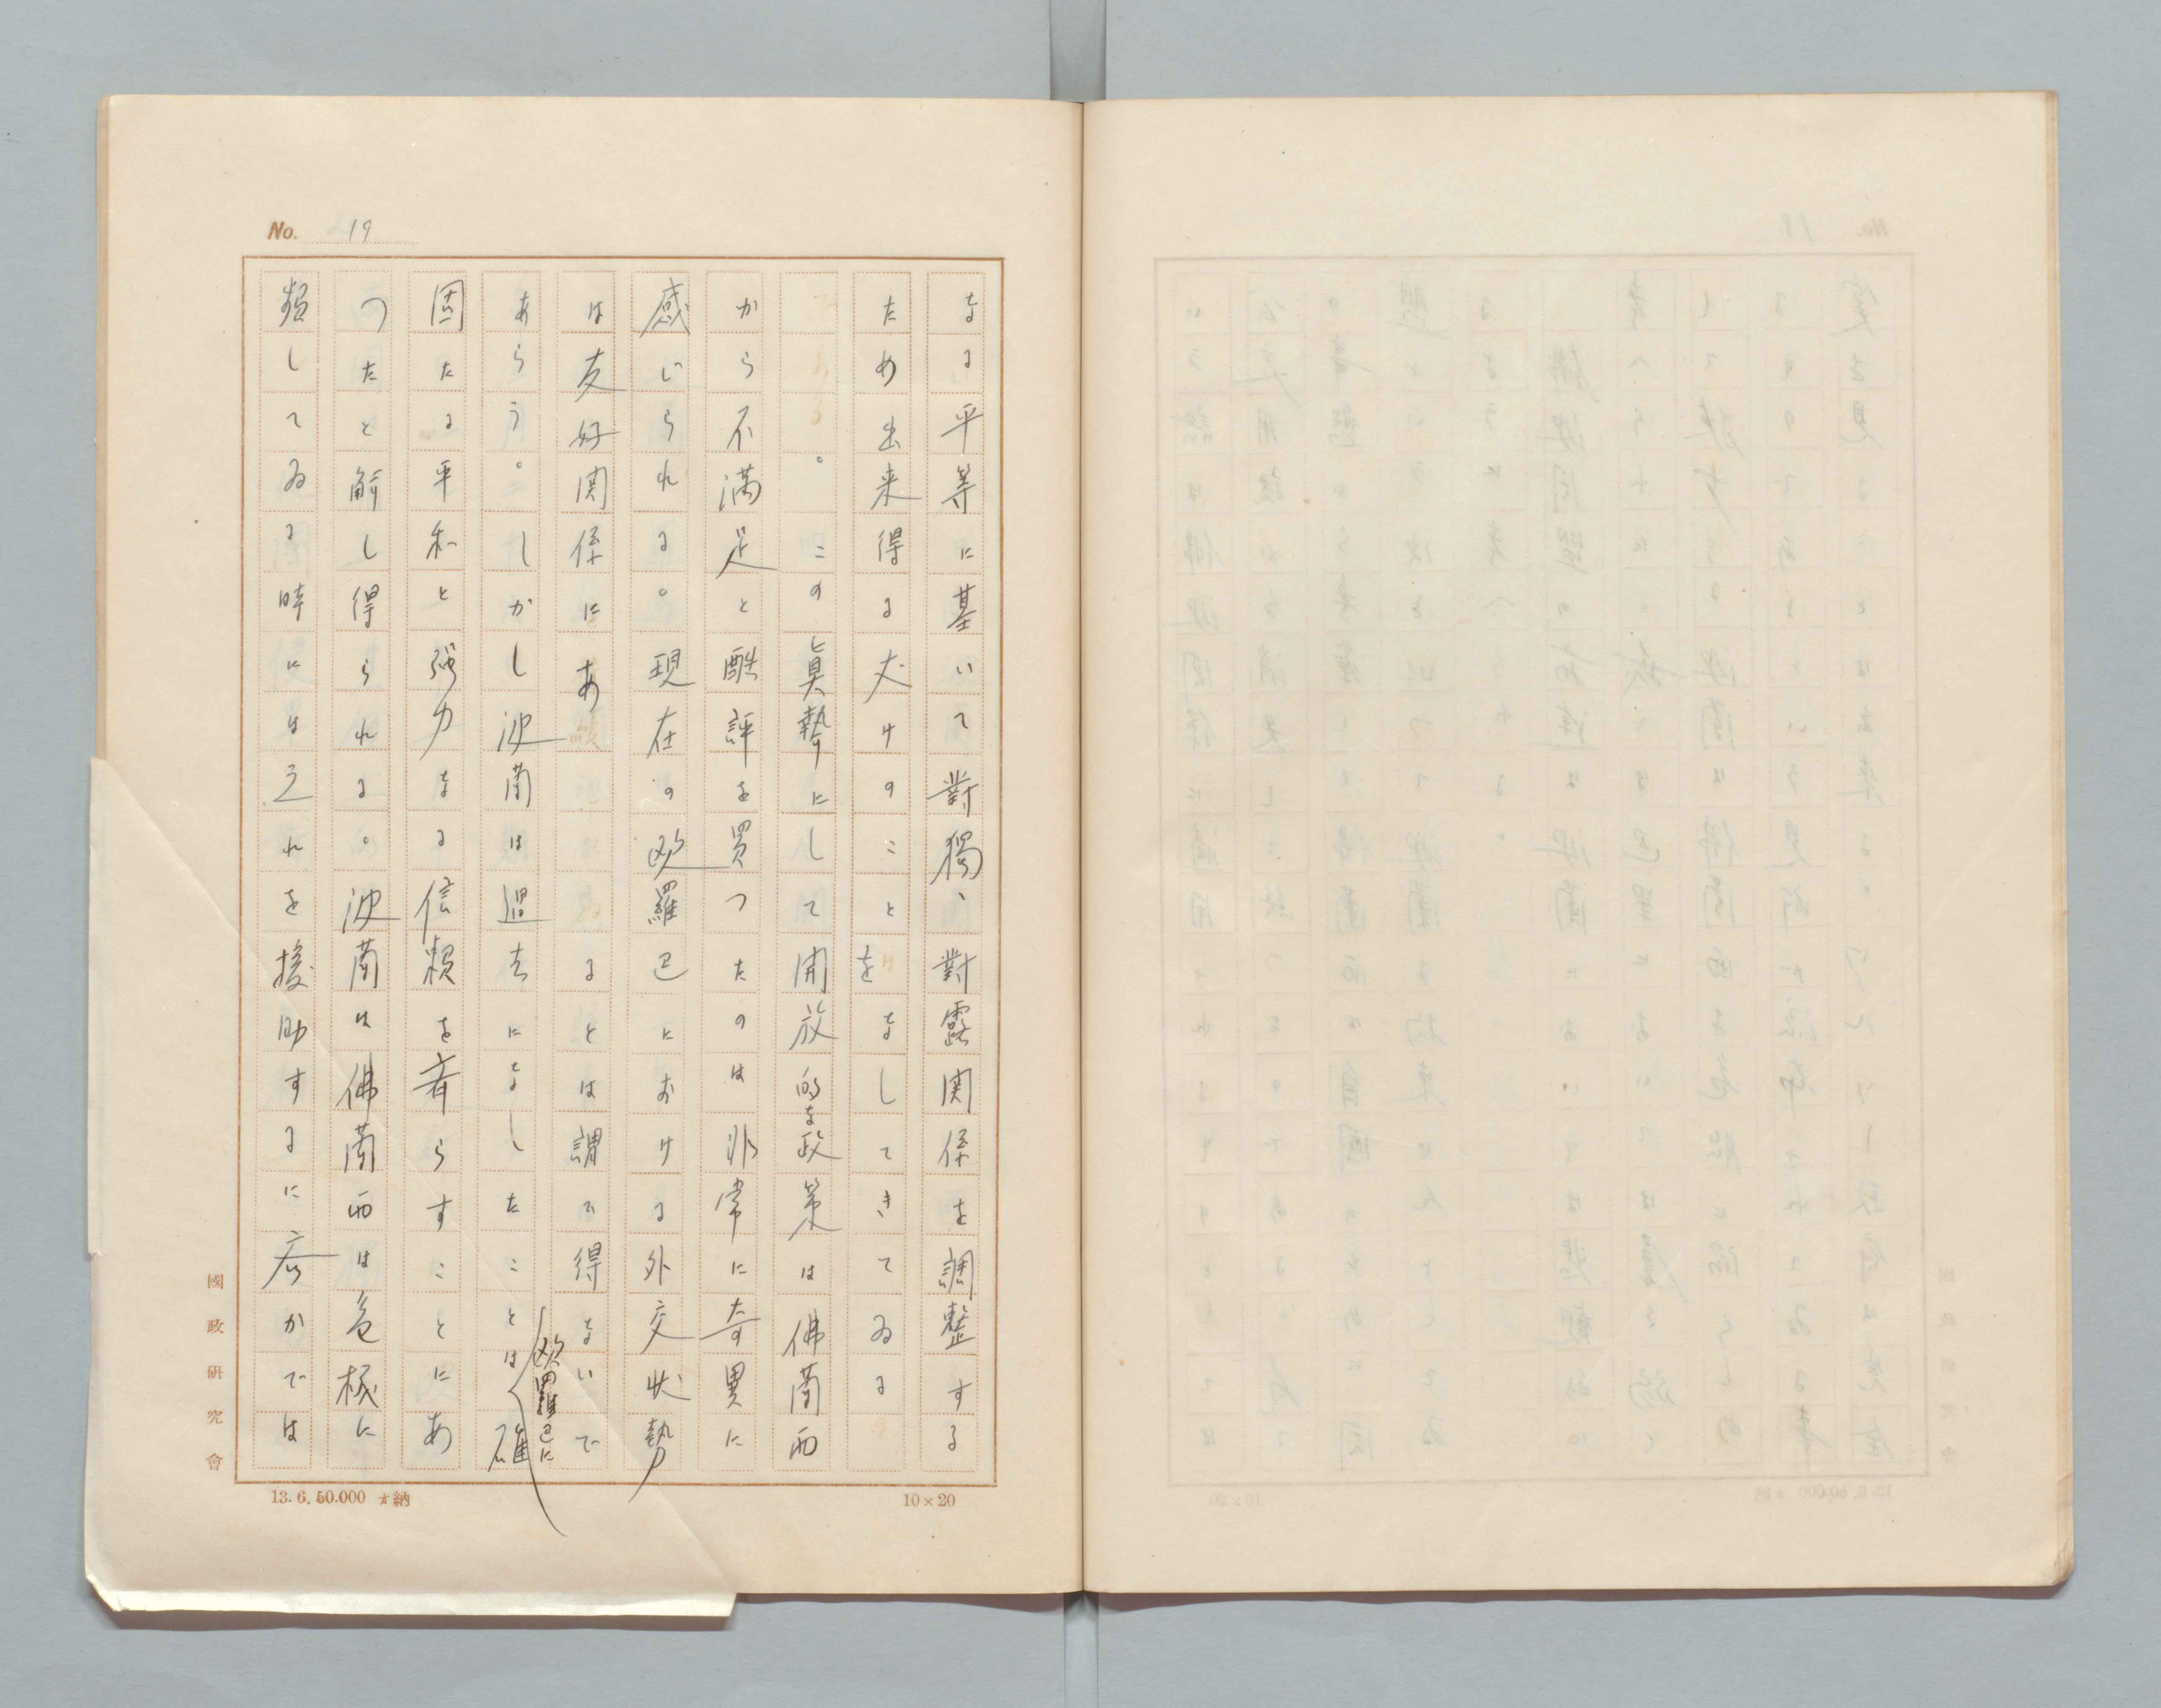 No. 19
なる平等に基いて對獨、對露関係を調整する
ため出来得る丈けのことをなしてきてゐる
。この眞摯にして開放的な政策は佛蘭西
から不満足と酷評を買つたのは非常に奇異に
感じられる。現在の欧羅巴に於ける外交状勢
は友好関係にあるとは謂ひ得ないで
あらう。しかし波蘭は過去になしたことは欧羅巴に確
固たる平和と強力なる信頼を齎らすことにあ
つたと解し得られる。波蘭は佛蘭西は危極に
頻してゐる時には之れを援助するに吝かでは
國政研究會
13.6.50.000 納
10×20